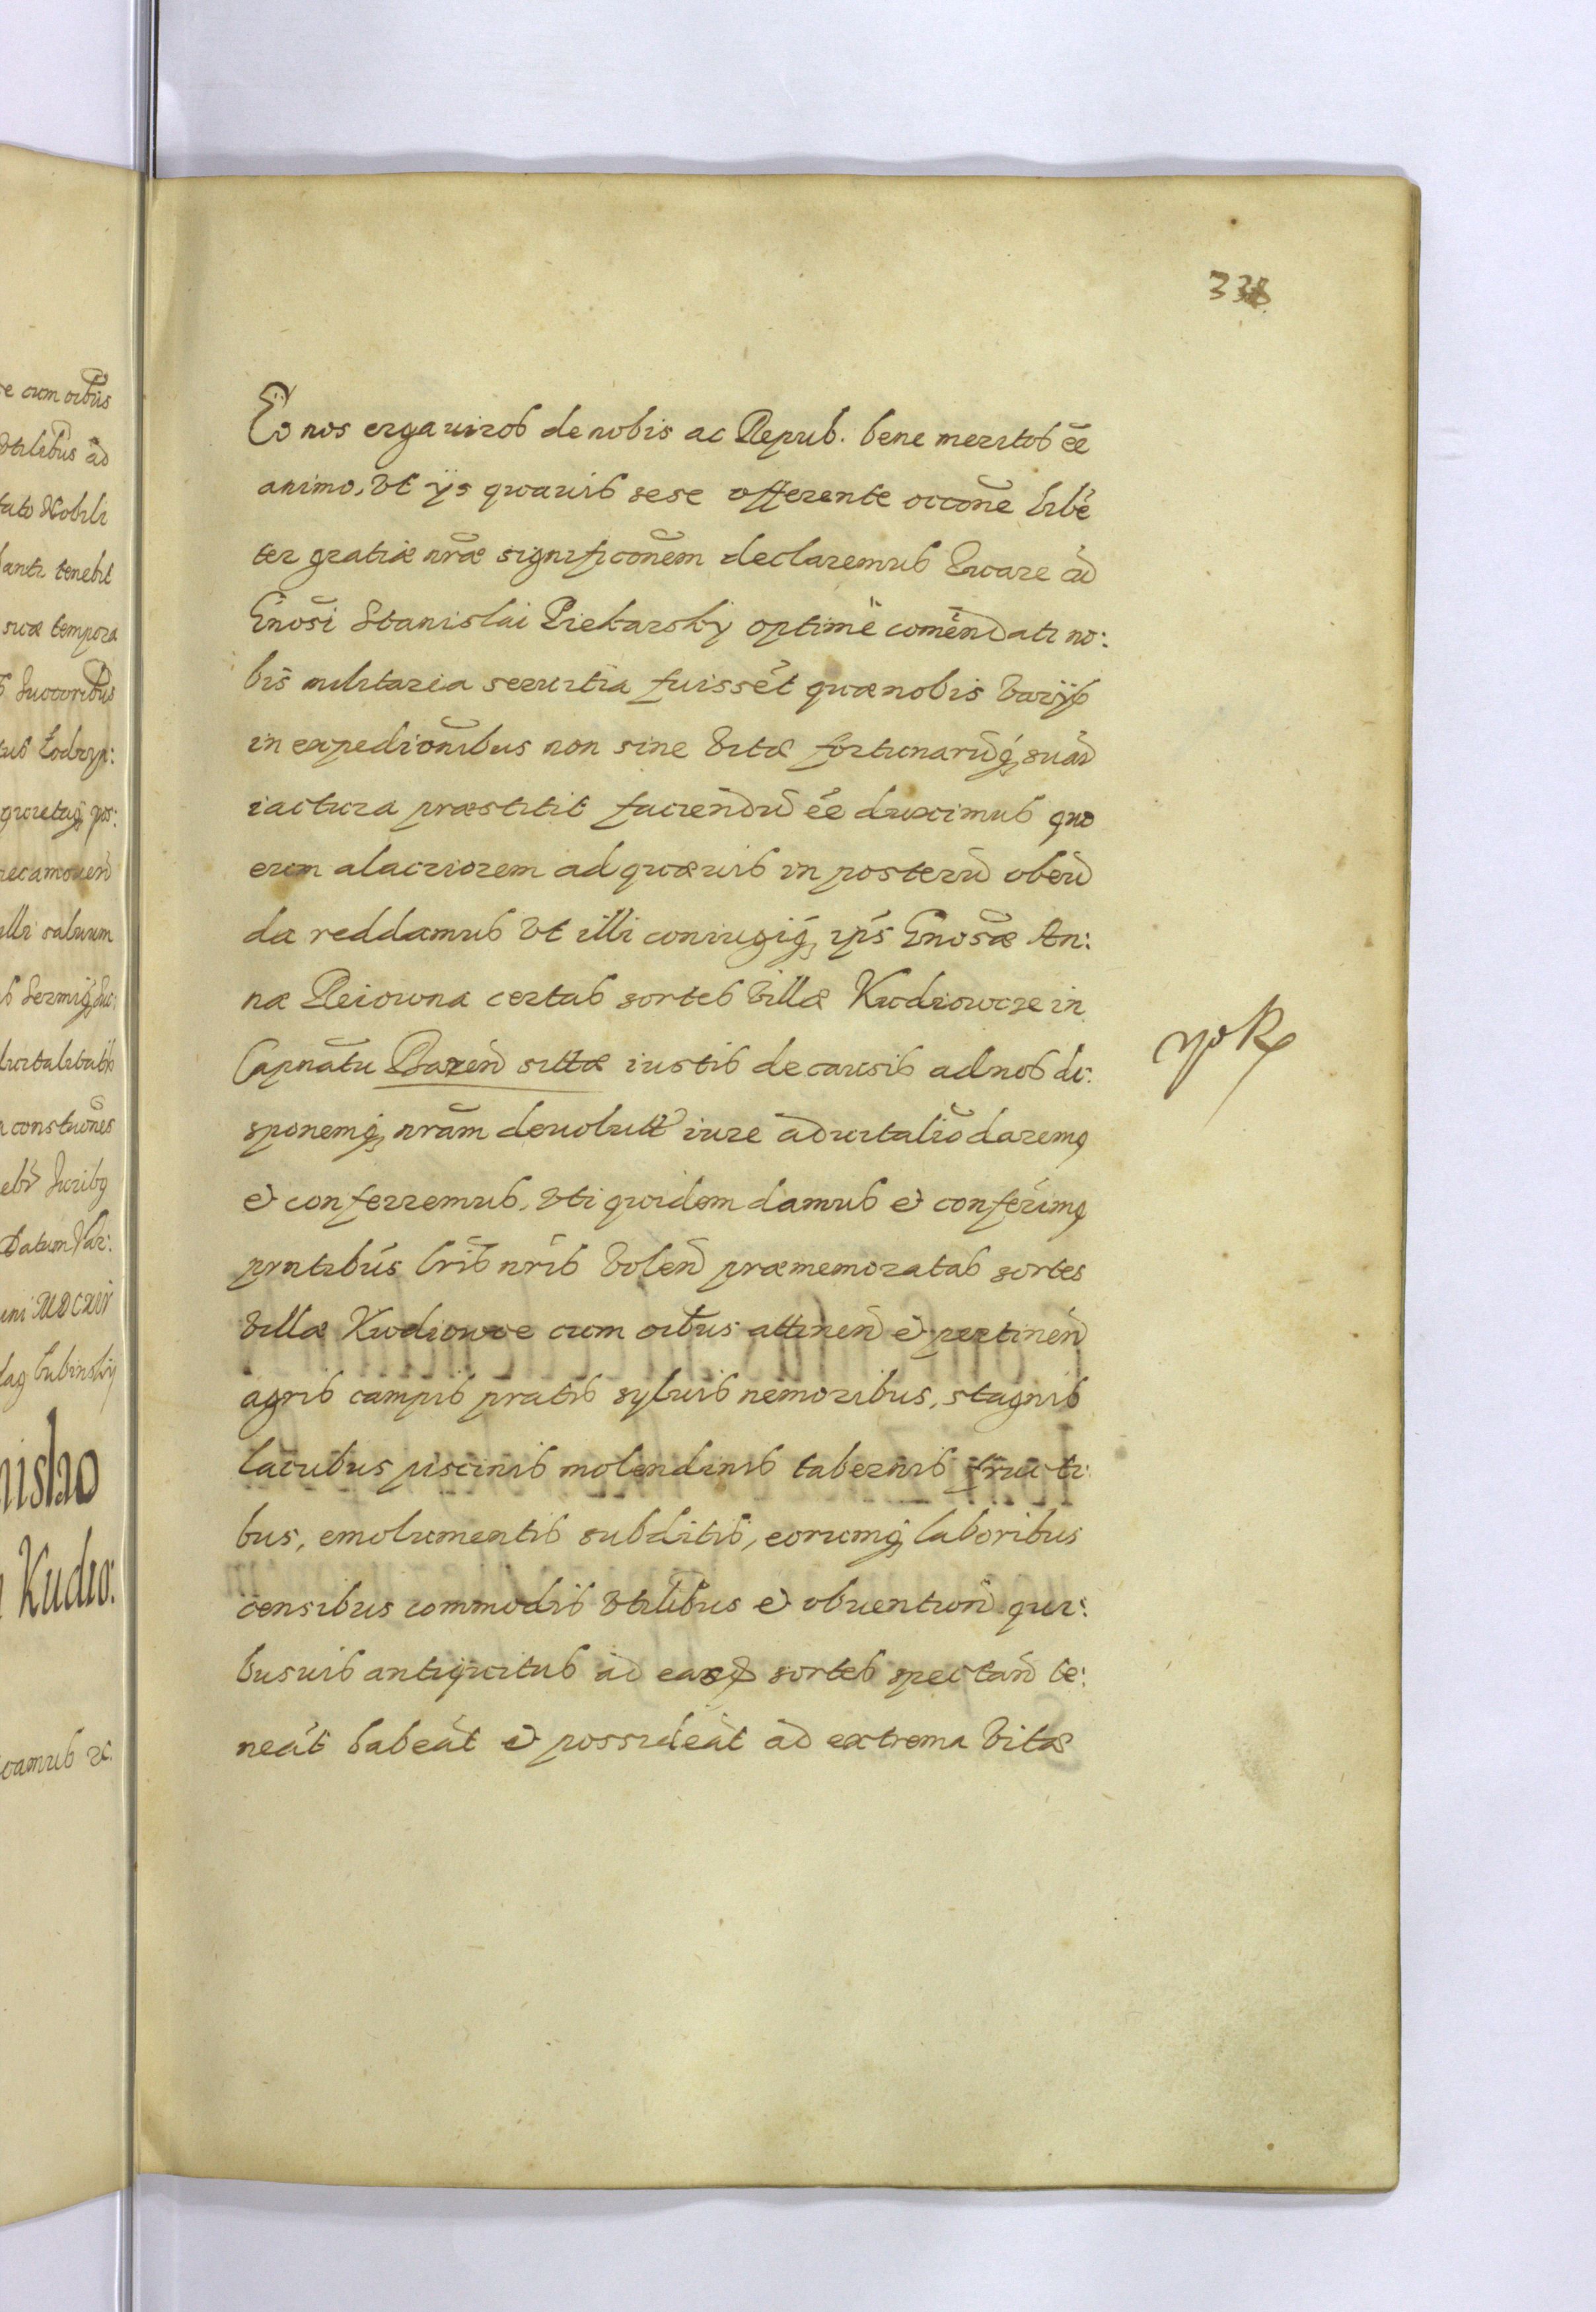 338
Eo nos erga uiros de nobis ac Repub. bene meritos ee
animo, vt ijs quauis sese offerente occone libe
ter gratiæ nræ significonem declaremus Quare cu
Gnosi Stanislai Piekarsky optime comendati no:
bis militaria seruitia fuisset quæ nobis varijs
in expedionibus non sine vitæ fortunaruq suaru
iactura præstitit faciendu ee duximus quo
eum alacriorem ad quæuis in posteru obeu
da reddamus vt illi coniugiq ips Gnosæ An:
næ Reiowna certas sortes villæ Kudiowce in
Capnatu Baren sittæ iustis de causis ad nos di:
sponemq nram deuolutt iure aduitalio daremq
et conferremus, vti quidem damus et conferimq
pntibus lris nris volen præmemoratas sortes
villæ Kudiowce cum oibus attinen et pertinen
agris campis pratis syluis nemoribus, stagnis
lacubus piscinis molendinis tabernis fructi:
bus, emolumentis subditis, eorumq laboribus
censibus commodis vtilibus et obuention qui:
busuis antiquitus ad easd sortes spectan te:
neat habeat et possideat ad extrema vitæ
e cum oibus
vtilibus ad
tato Nobili
anti tenebit
suæ tempora
Successoribus
illi saluum
constiones
Datum Var:
ini MDCXIII
Lubinsky
nislao
Kudio: